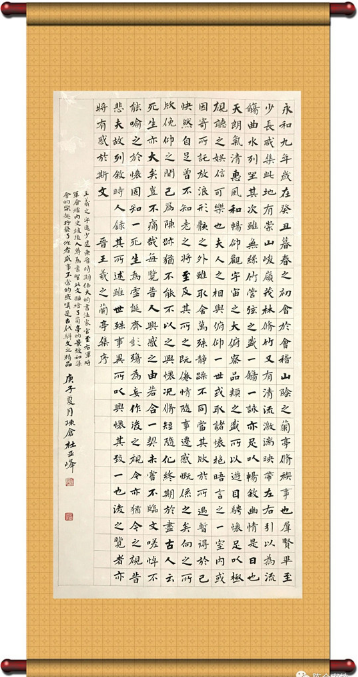 永和九年歲在癸丑暮春之初會於會稽山陰之蘭亭脩稧事也群賢畢至
少長咸集此地有崇山峻嶺茂林脩竹又有清流激湍映帶左右引以為流
觴曲水列坐其次雖無絲竹管弦之盛一觴一詠亦足以暢敘幽情是日也
天朗氣清惠風和暢仰觀宇宙之大俯察品類之盛所以遊目騁懷足以極
視聽之娛信可樂也夫人之相與俯仰一世或取諸懷抱晤言之一室內或
因寄所託放浪形骸之外雖取舍萬殊靜躁不同當其欣於所遇暫得於己
快然自足曾不知老之將至及其所之既倦情隨事遷感慨係之矣向之所
欣俛仰之間已為陳跡猶不能不以之興懷況脩短隨化終期於盡古人云
死生亦大矣豈不痛哉每覽昔人興感之由若合一契未嘗不臨文嗟悼不
能喻之於懷固知一死生為虛誕齊彭殤為妄作後之視今亦猶今之視昔
悲夫故列敘時人錄其所述雖世殊事異所以興懷其致一也後之覽者亦
將有感於斯文 晉王羲之蘭亭集序
庚子夏月陳倉杜